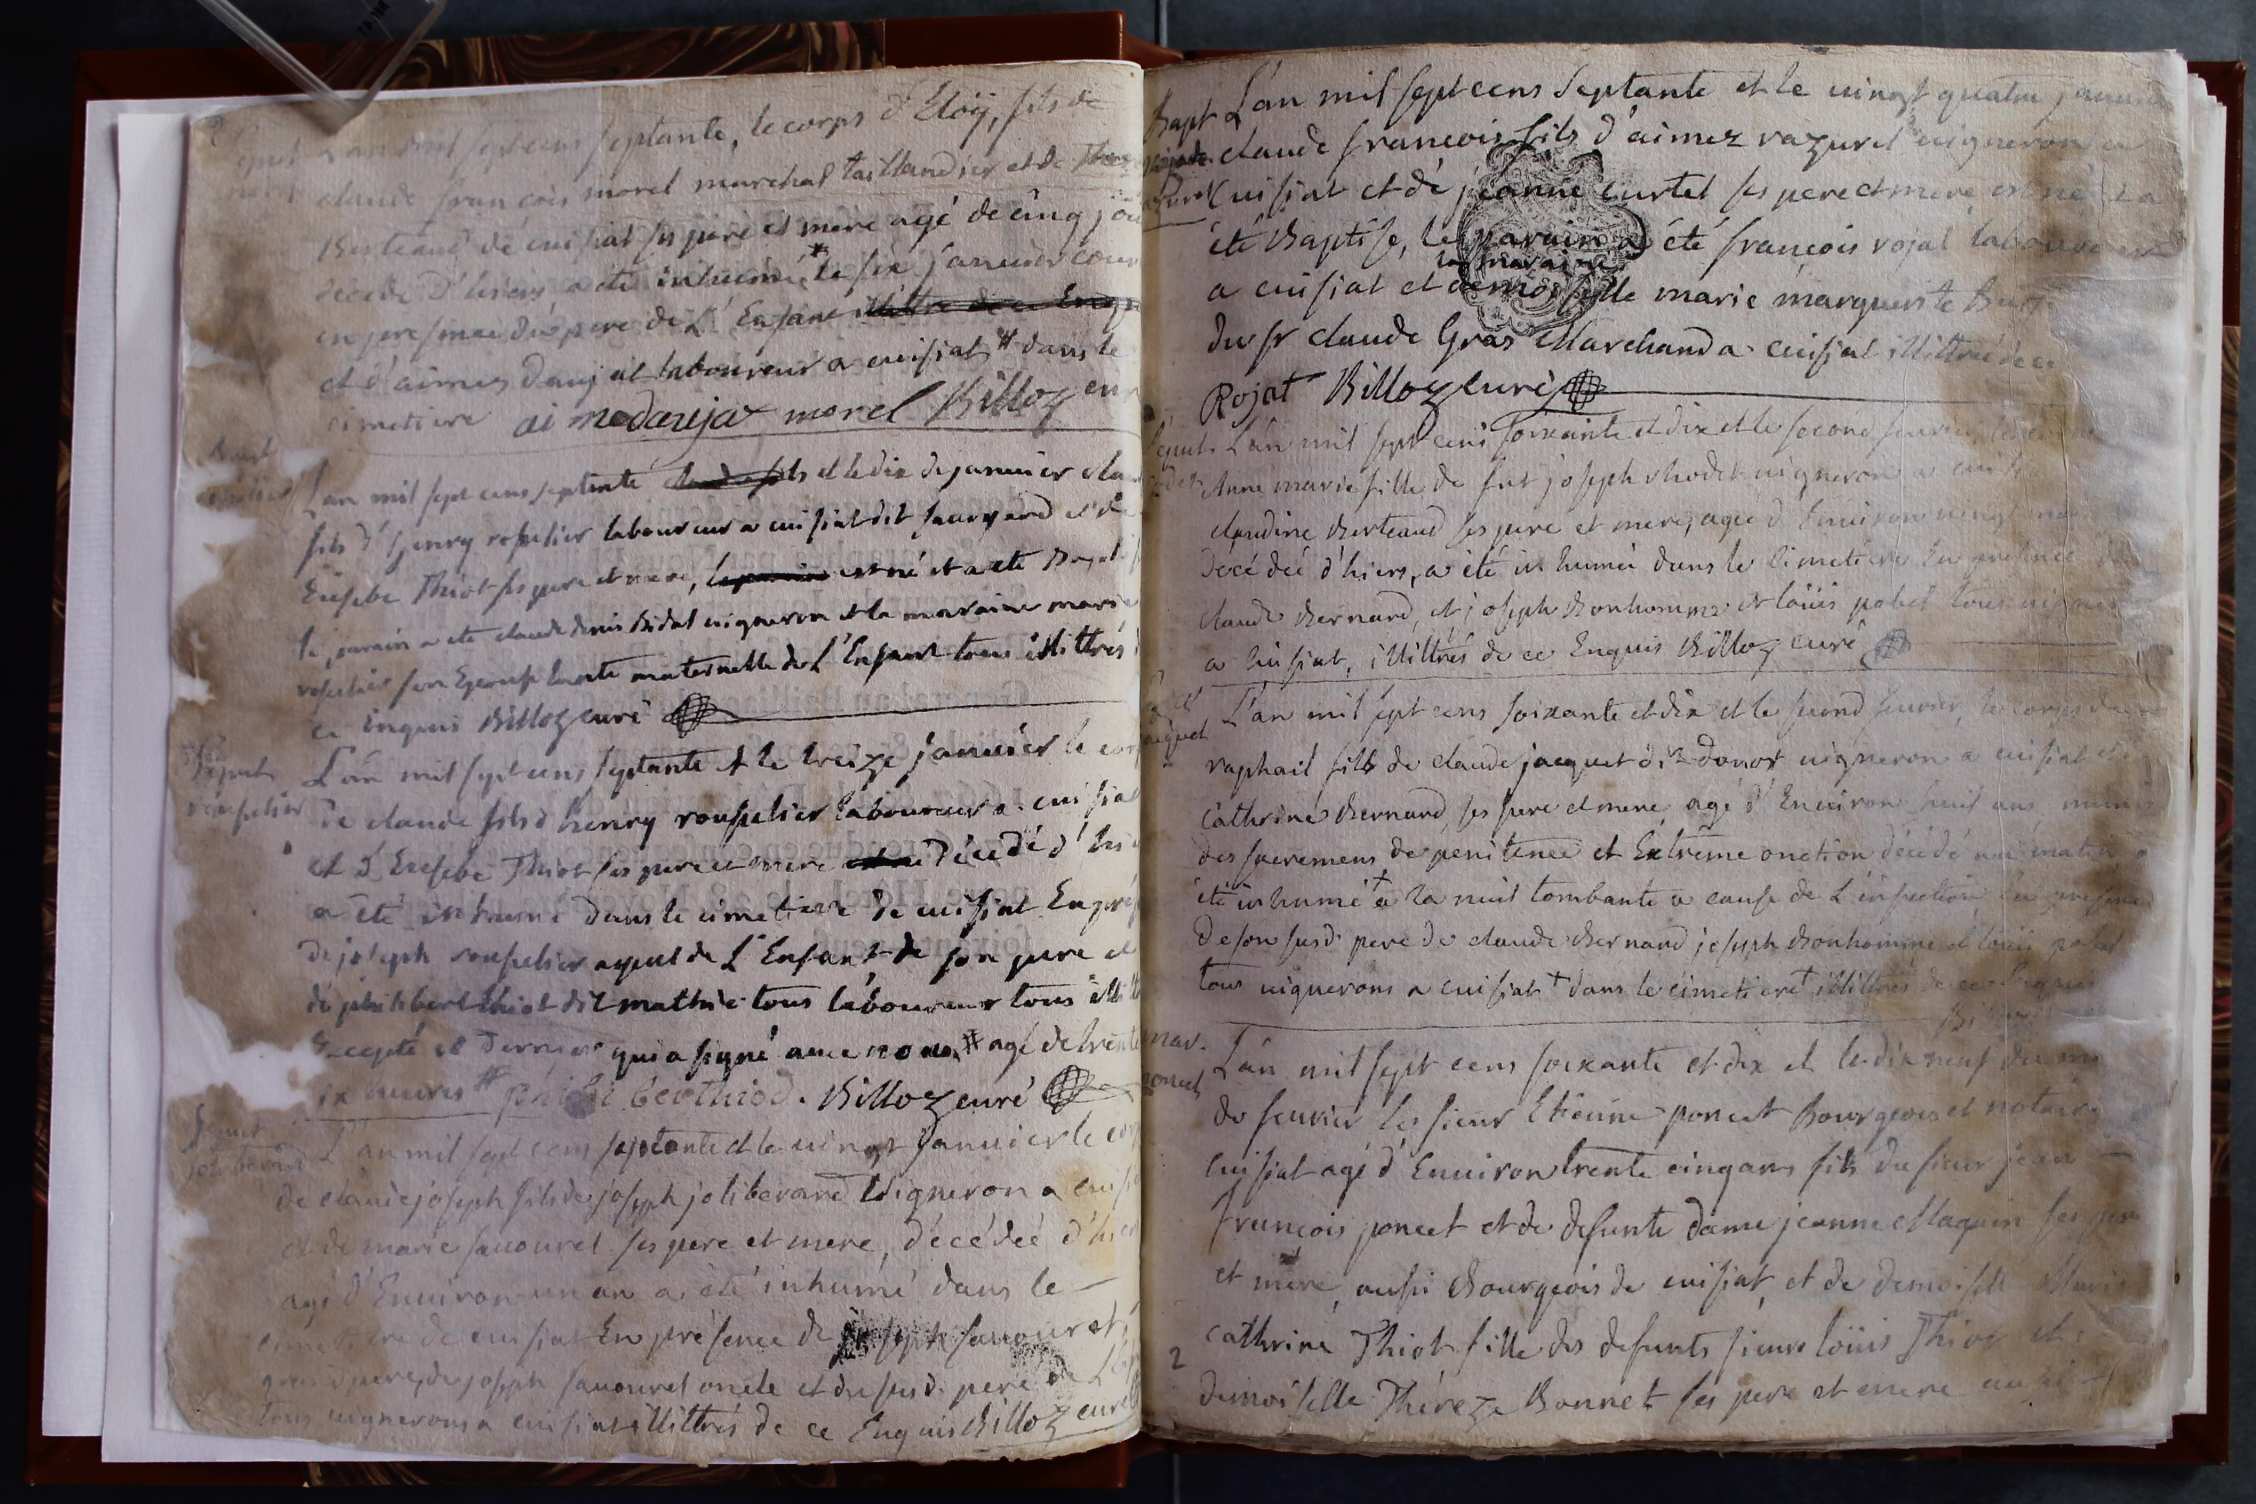 L'an mil sept cens septante, le corps d'Eloÿ, fils de
claude françois morel marechal taillandier et de
Berteaud de cuisiat ses pere et mere agé de cinq jou
décédé d'hiers a eté inhumé, * le six januier cour
en presence du pere de L'Enfant
et d'aimez daujat laboureur a cuisiat # dans le
cimetiere aimedaujat morel Billoz cur
Bapt
L'an mil sept cens septante et le dix de januier clau
fils d'henry rouselier laboureur a cuisiat dit et de
Eusebe Thiot ses pere et mere, est né et a eté Baptis
le parain a eté claude denis Bidal uigneron et la maraine marie
tante maternelle de L'Enfant tous illittrés
ce Enquis Billoz curé
Sepult
rouselier
L'an mil sept cens septante et le treize januier le corp
de claude fils d'henry rouselier laboureur a cuisiat
et d'Eusebe Thiot ses pere et mere décédé d'hier
a été inhumé dans le cimetiere de cuisiat En pres
de joseph rouselier ayeul de L'Enfant de son pere et
de philibert thiot dit mathie tous laboureur tous illitt
Excepté ce dernier qui a signé auec nous, # agé de trente
six heures # philibertthiod. Billoz curé
Sepult
joliberard
L'an mil sept cens septante et le uingt januier le corp
de claude joseph fils de joseph joliberard uigneron a cuisia
et de marie sauouret ses pere et mere, décédéé d'hier
agé d'Enuiron un an a été inhumé dans le
cimetiere de cuisiat En présence de joseph sauouret,
grand pere, de joseph sauouret oncle et du susd. pere de L'enf
tous uignerons a cuisiat illittrés de ce Enquis Billoz curé
Bapt
L'an mil sept cens septante et le uingt quatre januier
claude francois fils d'aimez razurel uigneron a
cuisiat et de jeanne curtet ses pere et mere est né et a
été Baptisé, le parain a été francois rojat laboureur
la maraine
a cuisiat et demoiselle marie marguerite
du sr claude Gras Marchand a cuisiat illittrée de ce
Rojat Billoz curé
Sepult.
L'an mil sept cens soixante et dix et le second feurier
Anne marie fille de fut joseph rhodet uigneron a cuisia
claudine Berteaud ses pere et mere, agée d'Enuiron uingt
décédéé d'hiers, a été inhumée dans le cimetiere En presence
claude Bernard, et joseph Bonhomme et loüis pobel tous uigner
a cuisiat, illittrés de ce Enquis Billoz curé
L'an mil sept cens soixante et dix et le second feurier, le corps de
raphail fils de claude jacquet dit donot uigneron a cuisiat et
cathrine Bernard, ses pere et mere, agé d'Enuiron huit ans muni
des sacremens de penitence et Extrême onction décédé ce matin a
été inhumé † a la nuit tombante a cause de L'infection En presence
de son susd. pere de claude Bernard joseph Bonhomme et loüis pobel
tous uignerons a cuisiat † dans le cimetiere † illittrés de ce Enquis
Billoz
mar.
poncet
L'an mil sept cens soixante et dix et le dix neuf du mois
de feurier le sieur Etienne poncet Bourgeois et notaire
cuisiat agé d'Enuiron trente cinq ans fils du sieur jean
françois poncet et de defunte dame jeanne Maquin ses pere
et mere, aussi Bourgeois de cuisiat, et de demoiselle Marie
cathrine Thiot fille des defunts sieur loüis Thiot et
demoiselle Théreze Bonnet ses pere et mere aussi
2